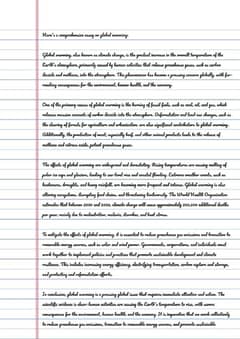 Here's a comprehensive essay on global warming:
Global warming, also known as climate change, is the gradual increase in the overall temperature of the
Earth's atmosphere, primarily caused by human activities that release greenhouse gases, such as carbon
dioxide and methane, into the atmosphere. This phenomenon has become a pressing concern globally, with far-
reaching consequences for the environment, human health, and the economy.
One of the primary causes of global warming is the burning of fossil fuels, such as coal, oil, and gas, which
releases massive amounts of carbon dioxide into the atmosphere. Deforestation and land-use changes, such as
the clearing of forests for agriculture and urbanization, are also significant contributors to global warming.
Additionally, the production of meat, especially beef, and other animal products leads to the release of
methane and nitrous oxide, potent greenhouse gases.
The effects of global warming are widespread and devastating. Rising temperatures are causing melting of
polar ice caps and glaciers, leading to sea-level rise and coastal flooding. Extreme weather events, such as
heatwaves, droughts, and heavy rainfall, are becoming more frequent and intense. Global warming is also
altering ecosystems, disrupting food chains, and threatening biodiversity. The World Health Organization
estimates that between 2030 and 2050, climate change will cause approximately 250,000 additional deaths
per year, mainly due to malnutrition, malaria, diarrhea, and heat stress.
To mitigate the effects of global warming, it is essential to reduce greenhouse gas emissions and transition to
renewable energy sources, such as solar and wind power. Governments, corporations, and individuals must
work together to implement policies and practices that promote sustainable development and climate
resilience. This includes increasing energy efficiency, electrifying transportation, carbon capture and storage,
and protecting and reforestation efforts.
In conclusion, global warming is a pressing issue that requires immediate attention and action. The
scientific evidence is clear: human activities are causing the Earth's temperature to rise, with severe
consequences for the environment, human health, and the economy. It is imperative that we work collectively
to reduce greenhouse gas emissions, transition to renewable energy sources, and promote sustainable